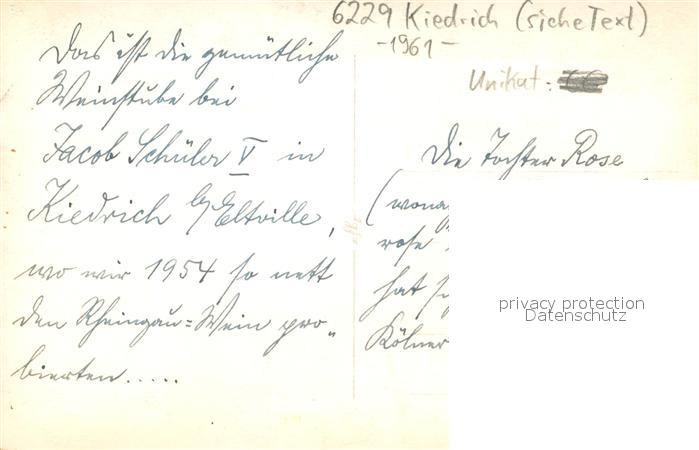 6229 Kiedrich (siehe Text)
-1961-
Unikat:
Das ist die gemütliche
Weinstube bei
Jacob Schüler V in
Kiedrich b/Eltville,
wo wir 1954 so nett
den Rheingau=Wein pro„
bierten.....
Die Tochter Rose
(
rose
hat
Kölner
privacy protection
Datenschutz